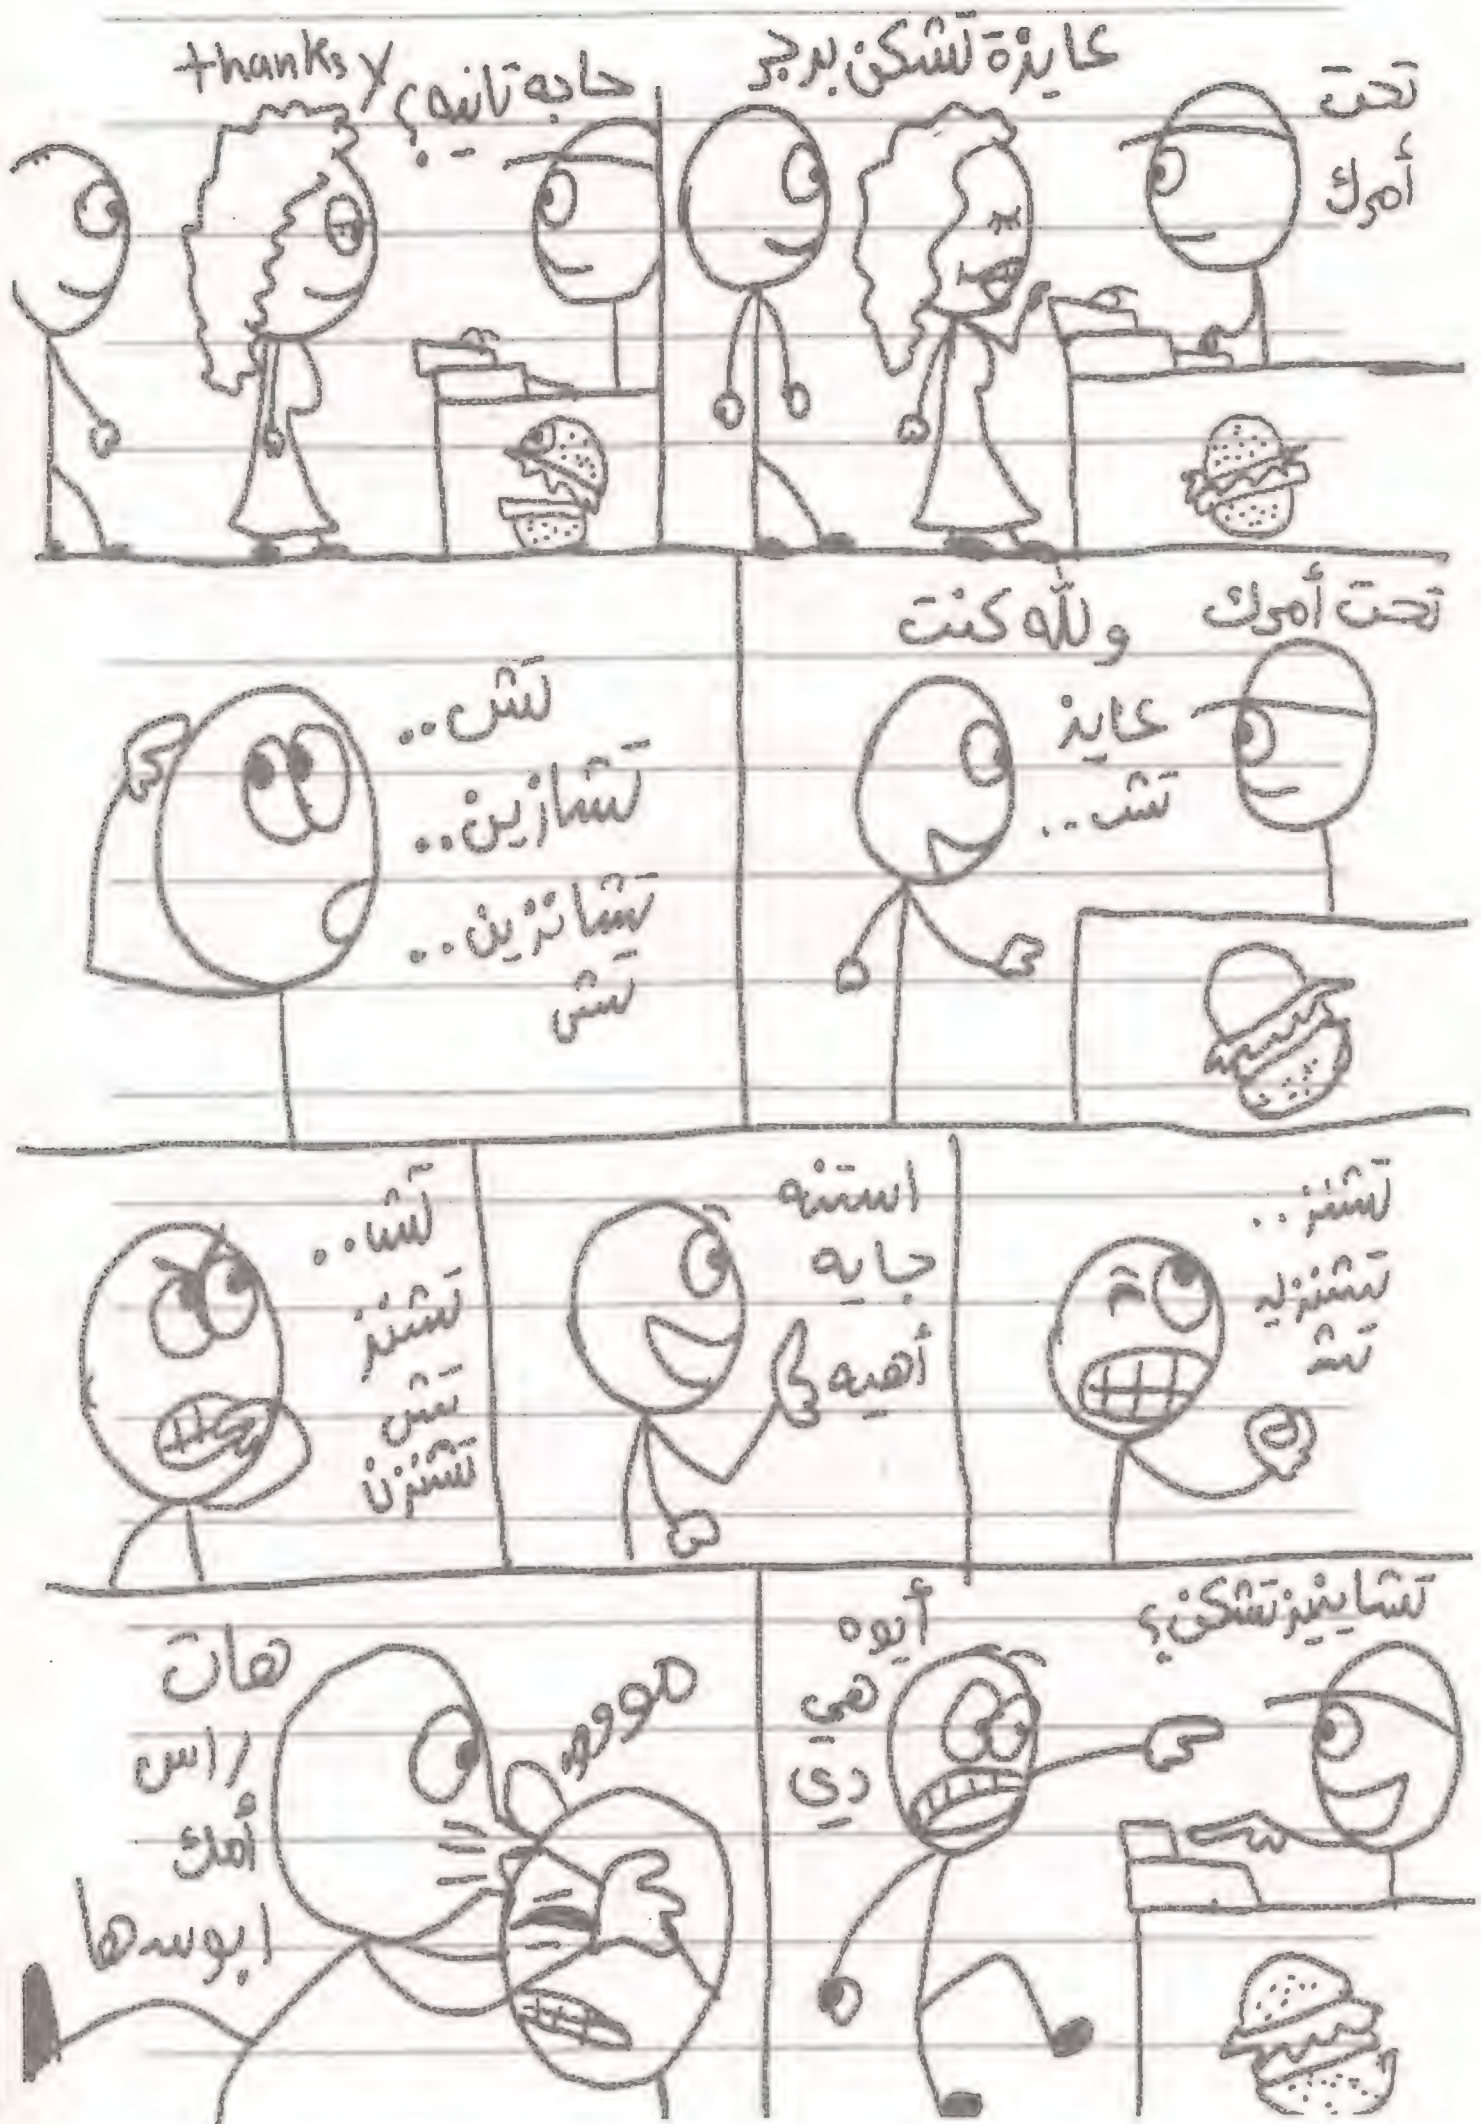 تحت
أمرك
عايزة تشكن برجر
حاجه تانيه؟
لا thanks
تحت أمرك
وللّه كنت
عايز
تش..
تش..
تشازين..
تشانزين..
تش
تشنز..
تشنزيه
تش
استنه
جايه
أهيه
تشا..
تشنز
تش
تشنزن
تشاينيز تشكن؟
أيوه
هي
دي
مووووه
هات
راس
أمك
ابوسها